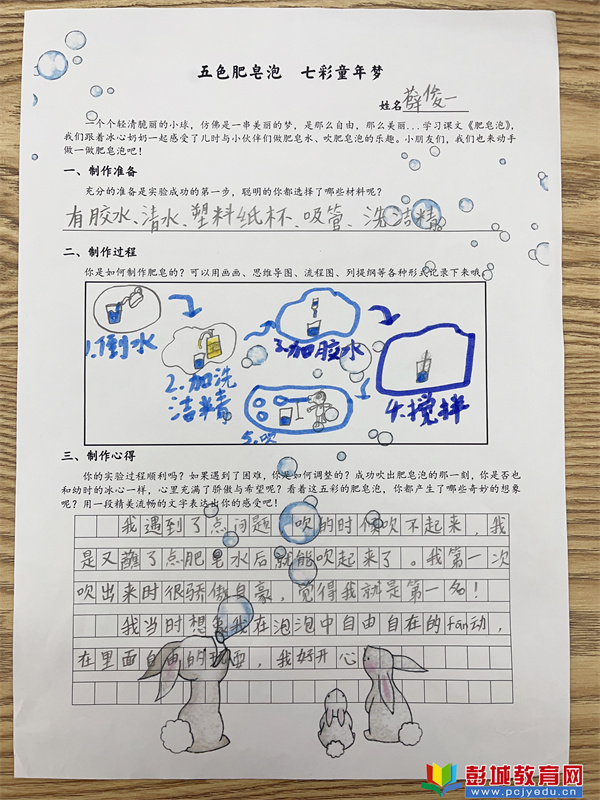 五色肥皂泡 七彩童年梦
姓名 薛俊一
一个个轻清脆丽的小球，仿佛是一串美丽的梦，是那么自由，那么美丽...学习课文《肥皂泡》，
我们跟着冰心奶奶一起感受了儿时与小伙伴们做肥皂水、吹肥皂泡的乐趣。小朋友们，我们也来动手
做一做肥皂泡吧！
一、制作准备
充分的准备是实验成功的第一步，聪明的你都选择了哪些材料呢？
有胶水、清水、塑料纸杯、吸管、洗洁精。
二、制作过程
你是如何制作肥皂的？可以用画画、思维导图、流程图、列提纲等各种形式记录下来哦
1.倒水
2.加洗
洁精
3.加胶水
4.搅拌
5.吹
三、制作心得
你的实验过程顺利吗？如果遇到了困难，你是如何调整的？成功吹出肥皂泡的那一刻，你是否也
和幼时的冰心一样，心里充满了骄傲与希望呢？看着这五彩的肥皂泡，你都产生了哪些奇妙的想象
呢？用一段精美流畅的文字表达出你的感受吧！
我遇到了点问题，吹的时候吹不起来，我
是又蘸了点肥皂水后就能吹起来了。我第一次
吹出来时很骄傲自豪，觉得我就是第一名！
我当时想象我在泡泡中自由自在的fan动，
在里面自由的玩耍，我好开心
彭城教育网
www.pcjyedu.cn